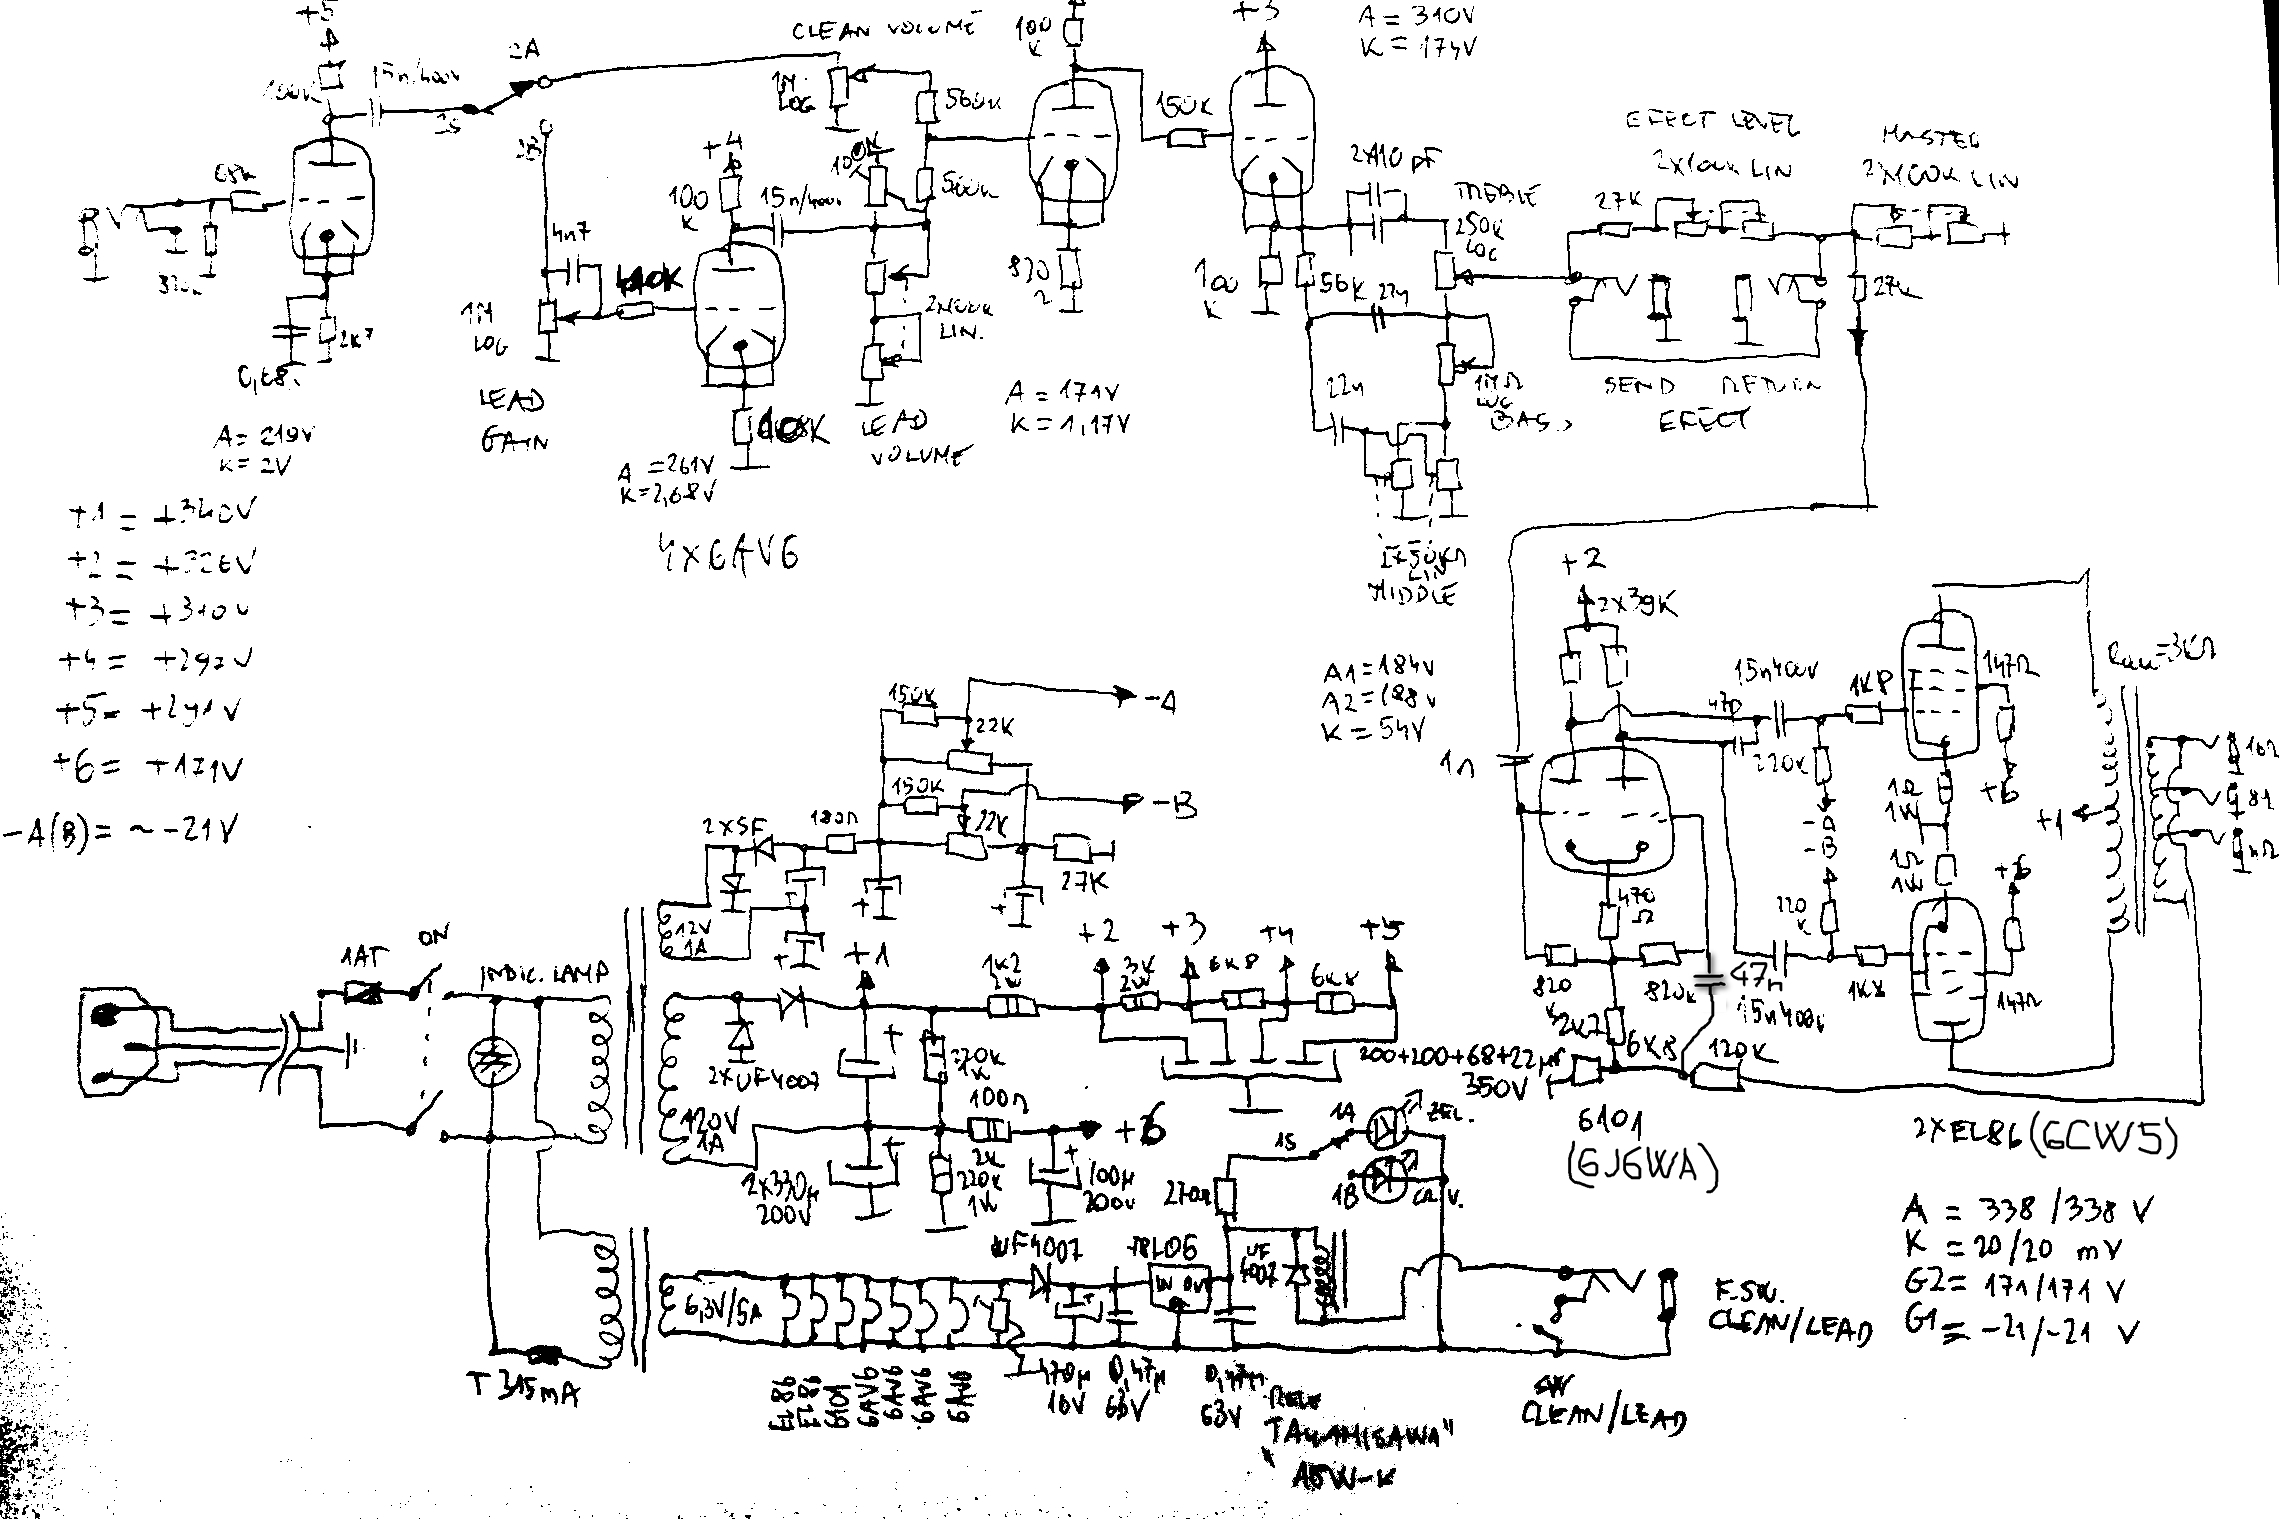 +5
100K
15n/400v
2A
2S
2B
CLEAN VOLUME
1M
LOG
560K
100
K
+3
A = 310V
K = 174V
150K
68K
+4
100
K
15n/400v
100K
560K
4n7
1M
LOG
LEAD
GAIN
2K7
0,68
A = 219V
K = 2V
A = 261V
K = 2,68V
4X6AV6
2x100K
LIN.
LEAD
VOLUME
820
Ω
A = 171V
K = 1,17V
2x110 pF
TREBLE
250K
LOG
100
K
56K
22n
22n
1MΩ
LOG
BASS
2x50KΩ
LIN
MIDDLE
EFECT LEVEL
2x100K LIN
MASTER
2x100K LIN
27K
27K
SEND
RETURN
EFECT
+1 = +340V
+2 = +326V
+3 = +310V
+4 = +292V
+5 = +291V
+6 = +171V
-A(B) = ~ -21V
+2
2x39K
A1 = 184V
A2 = 188V
K = 54V
1n
15n400V
47p
1K8
147Ω
220K
-A
-B
1Ω
1W
+6
1Ω
1W
+6
220
K
1K8
147Ω
Raa = 3KΩ
+1
16Ω
8Ω
4Ω
470
Ω
820
K
820K
47n
15n400V
2K7
6K8
120K
6101
(6J6WA)
2XEL86(6CW5)
A = 338/338 V
K = 20/20 mV
G2 = 171/171 V
G1 = -21/-21 V
150K
-A
22K
150K
-B
22K
2xSF
180Ω
27K
12V
1A
+1
1K2
2W
+2
3K
2W
+3
6K8
+4
6K8
+5
200+200+68+22µF
350V
1AT
ON
INDIC. LAMP
2XUF4007
120V
1A
220K
100Ω
2W
+6
2x330µ
200V
220K
1W
100µ
200V
T 315mA
6,3V/5A
EL86
EL86
6101
6AV6
6AV6
6AV6
6AV6
UF4007
78L06
IN
OUT
UF
4007
270Ω
1S
1A
ZEL.
1B
470µ
10V
0,47µ
63V
0,47µ
63V
RELE
"TAKAMISAWA"
A5W-K
F.SW.
CLEAN/LEAD
SW
CLEAN/LEAD